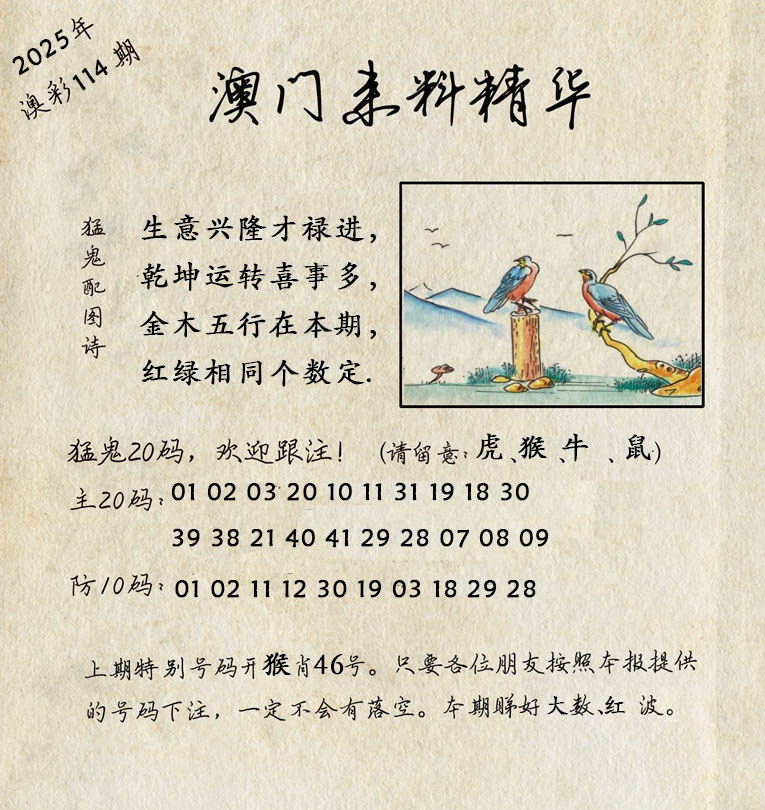 2025年
澳彩114期
澳门来料精华
猛鬼配图诗
生意兴隆才禄进,
乾坤运转喜事多,
金木五行在本期,
红绿相同个数定.
猛鬼20码，欢迎跟注！（请留意：虎、猴、牛、鼠）
主20码：01 02 03 20 10 11 31 19 18 30
39 38 21 40 41 29 28 07 08 09
防10码：01 02 11 12 30 19 03 18 29 28
上期特别号码开猴肖46号。只要各位朋友按照本报提供
的号码下注，一定不会有落空。本期睇好大数、红波。